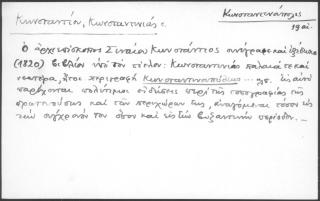 Κωνσταντινούπολις
19 αἰ.
Κωνσταντῖν, Κωνσταντινιάς.
Ὁ ἀρχιεπίσκοπος Σιναίου Κωνστάντιος συνέγραψε καὶ ἐξέδωκε
(1820) βιβλίον ὑπὸ τὸν τίτλον: Κωνσταντινιὰς παλαιά τε καὶ
νεωτέρα, ἤτοι περιγραφὴ Κωνσταντινουπόλεως ... Ἐν αὐτῷ
παρέχονται πολύτιμοι εἰδήσεις περὶ τῆς τοπογραφίας τῆς
πρωτευούσης καὶ τῶν περιχώρων της, ἀναγόμεναι τόσον εἰς
τὴν σύγχρονόν του ὅσον καὶ εἰς τὴν βυζαντινὴν περίοδον.